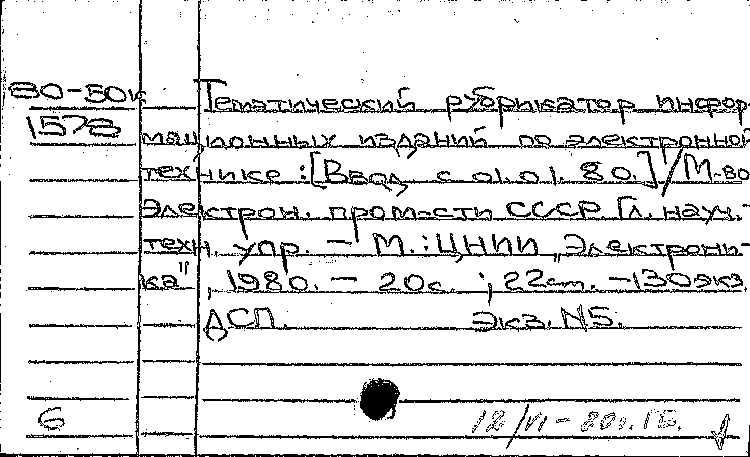 80-50к Тематический рубрикатор инфор-
1578 мационных изданий по электронной
технике : [Ввод. с 01.01.80.] / М-во
электрон. пром-сти СССР. Гл. науч.-
техн. упр. – М. : ЦНИИ "Электрони-
ка", 1980. – 20с. ; 22см. – 130экз.
ДСП. Экз. N5.
6 12/VI – 80г. ГБ.